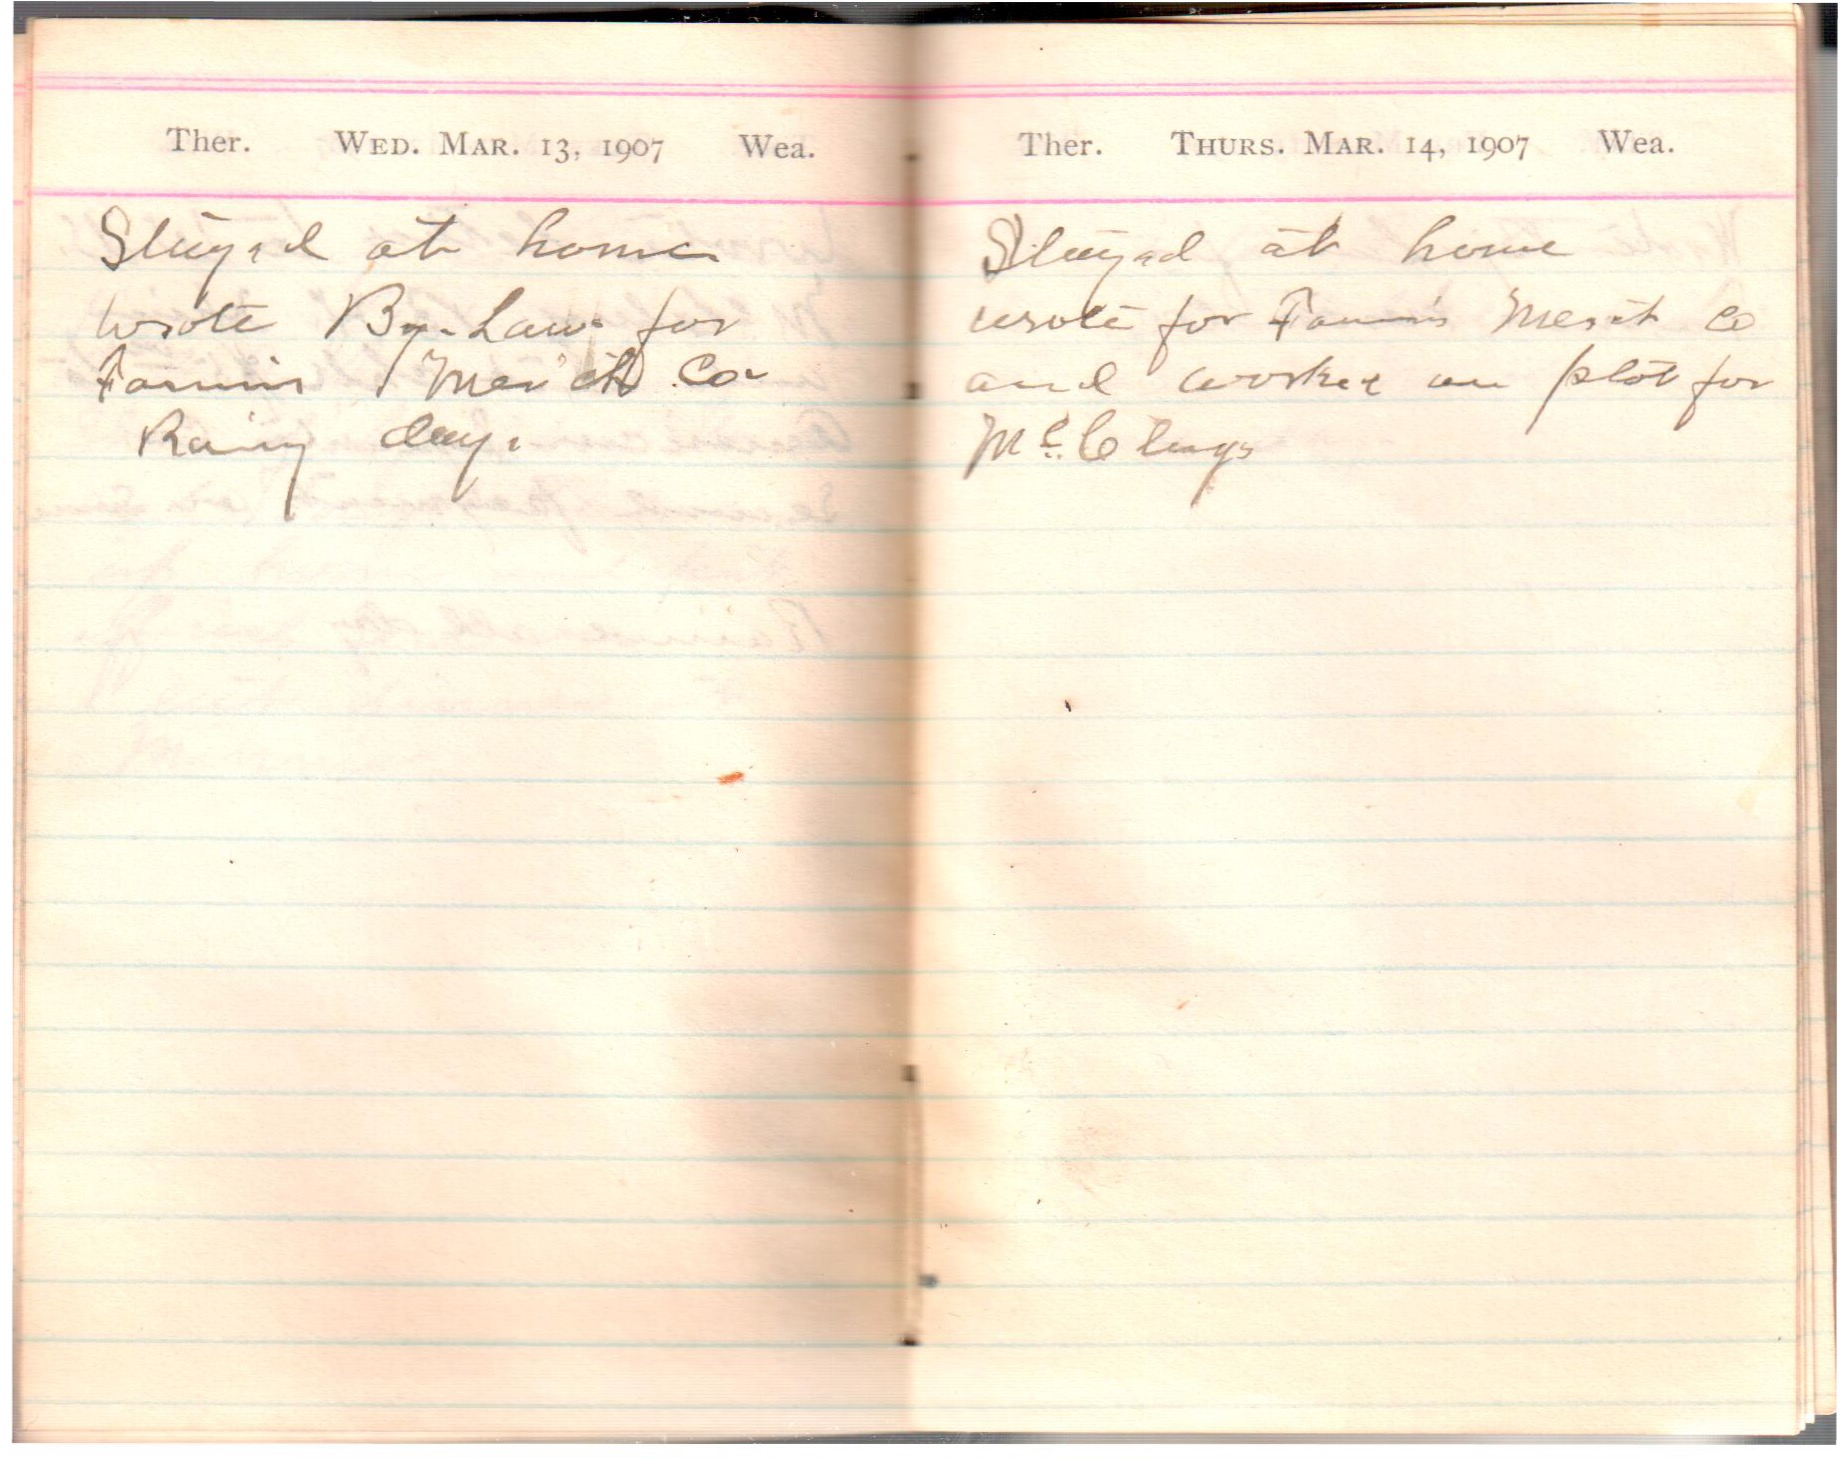 Ther. WED. MAR. 13, 1907 Wea.
Stayed at home
wrote By-Laws for
Farmers Mer'ch Co
Rainy day.
Ther. THURS. MAR. 14, 1907 Wea.
Stayed at home
wrote for Farmers Merch Co
and worked on plot for
Mc